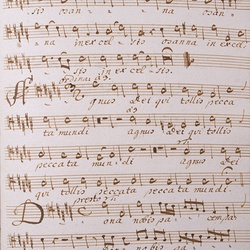 sis osan na osan
na in excel sis osanna in excel
sis in excel sis.
Agnus Dei qui tollis pecca
ta mundi agnus Dei qui tollis
peccata mun di
qui tollis peccata peccata mundi.
presto
Dona nobis pa cem pa
nobis pa